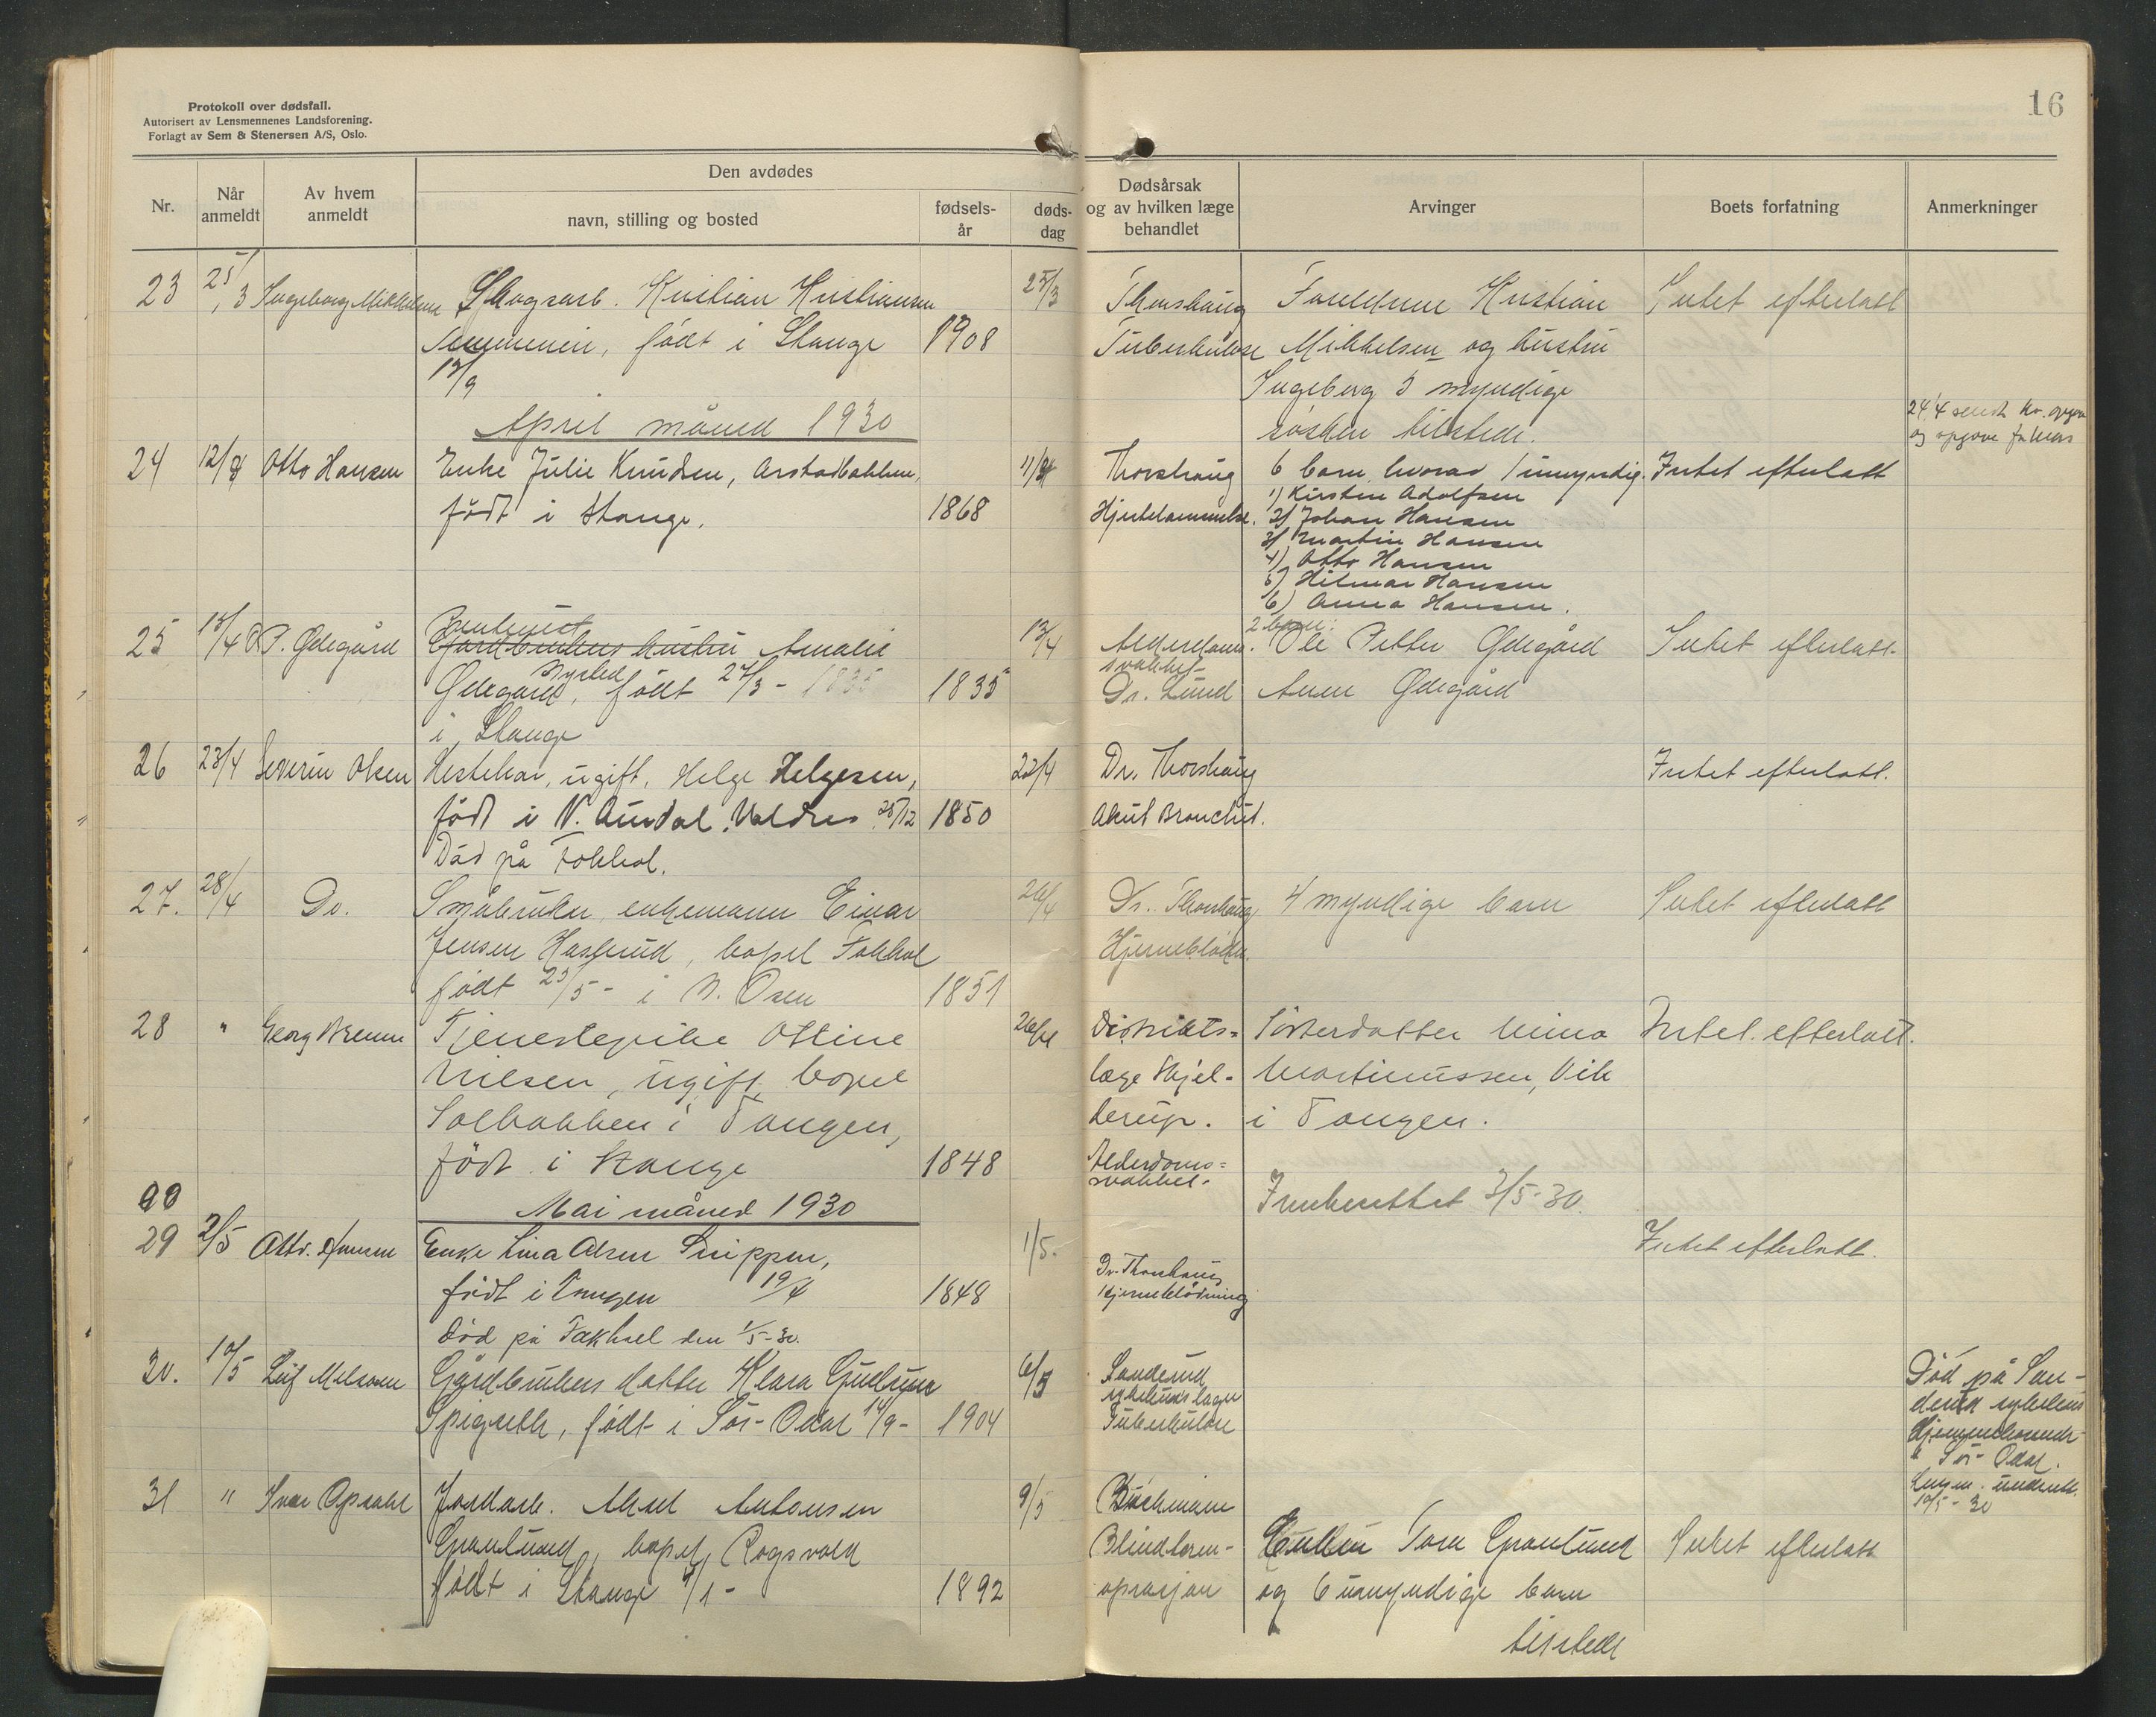 Protokoll over dødsfall.
Autorisert av Lensmennenes Landsforening.
Forlagt av Sem & Stenersen A/S, Oslo.
16
Nr.
Når anmeldt
Av hvem anmeldt
Den avdødes
navn, stilling og bosted
fødsels-år
døds-dag
Dødsårsak og av hvilken læge behandlet
Arvinger
Boets forfatning
Anmerkninger
23 25/3 Ingeborg Mikkelsen Skogsarb. Kristian Kristiansen 25/3 Thorshaug Foreldrene Kristian Intet efterlatt
født i Stange 1908 Tuberkulose Mikkelsen og hustru
13/9 Ingeborg 3 myndige
April måned 1930 søsken tilstede.
24/4 sendt
og opgave
24 12/4 Otto Hansen Enke Julie Knudsen, Arstadbakken, 11/4 Thorshaug 6 barn hvorav 1 umyndig. Intet efterlatt
født i Stange. 1868 Hjertelammelse. 1) Kirsten Adolfsen
2) Johan Hansen
3) Martin Hansen
4) Otto Hansen
5) Hilmar Hansen
6) Anna Hansen.
25 15/4 O P. Ødegård Gårdbrukers hustru Amalie 13/4 Alderdoms- 2 barn: Ole Petter Ødegård Intet efterlatt.
svakhet
Ødegård, født 27/3 - 1835 1835 Dr. Lund Ødegård
i Stange
26 23/4 Severin Olsen Hestekar, ugift, Helge Helgesen, 22/4 Dr. Thorshaug Intet efterlatt.
født i N. Aurdal, Valdres 25/12 1850 Akut Bronchit.
Død på Fokhol.
27. 28/4 Do. Småbruker, enkemann Einar 26/4 Dr. Thorshaug 4 myndige barn Intet efterlatt
Jensen Haslund, bopel Fokhol Hjerneblødn.
født 23/5 - i N. Osen 1851
28 " Georg Brenn Tjenestepike Ottine 26/4 Distrikts- Søsterdatter Mina Intet efterlatt.
Nilsen, ugift, bopel læge Skjel- Martinussen, Vik
Solbakken i Tangen, derup. i Tangen.
født i Stange 1848 Alderdoms-
svakhet.
Mai måned 1930 Innberettet 2/5-30.
29 2/5 Enke Lina Olsen Snippen, 1/5. Intet efterlatt.
født i Tangen 19/4 1848 Dr. Thorshaug
Hjerneblødning
Død på Fokhol den 1/5-30.
30. 10/5 Leif Melsom Gårdbrukers datter Klara Gudrun 6/5 Sanderud
Spigseth, født i Sør-Odal 14/9 - 1904 sykehus læge
Tuberkulose
Død på San-
derud sykehus
Hjemmehørende
i Sør-Odal.
Lensm. underr.
10/5-30
31 " Ivar Opsahl Jordarb. Aksel Antonsen 9/5 Bachmann
Granlund, bopel Rogsvold Blindtarm- Enken Tora Granlund Intet efterlatt
født i Stange /1 - 1892 oprasjon og 6 umyndige barn
tilstede